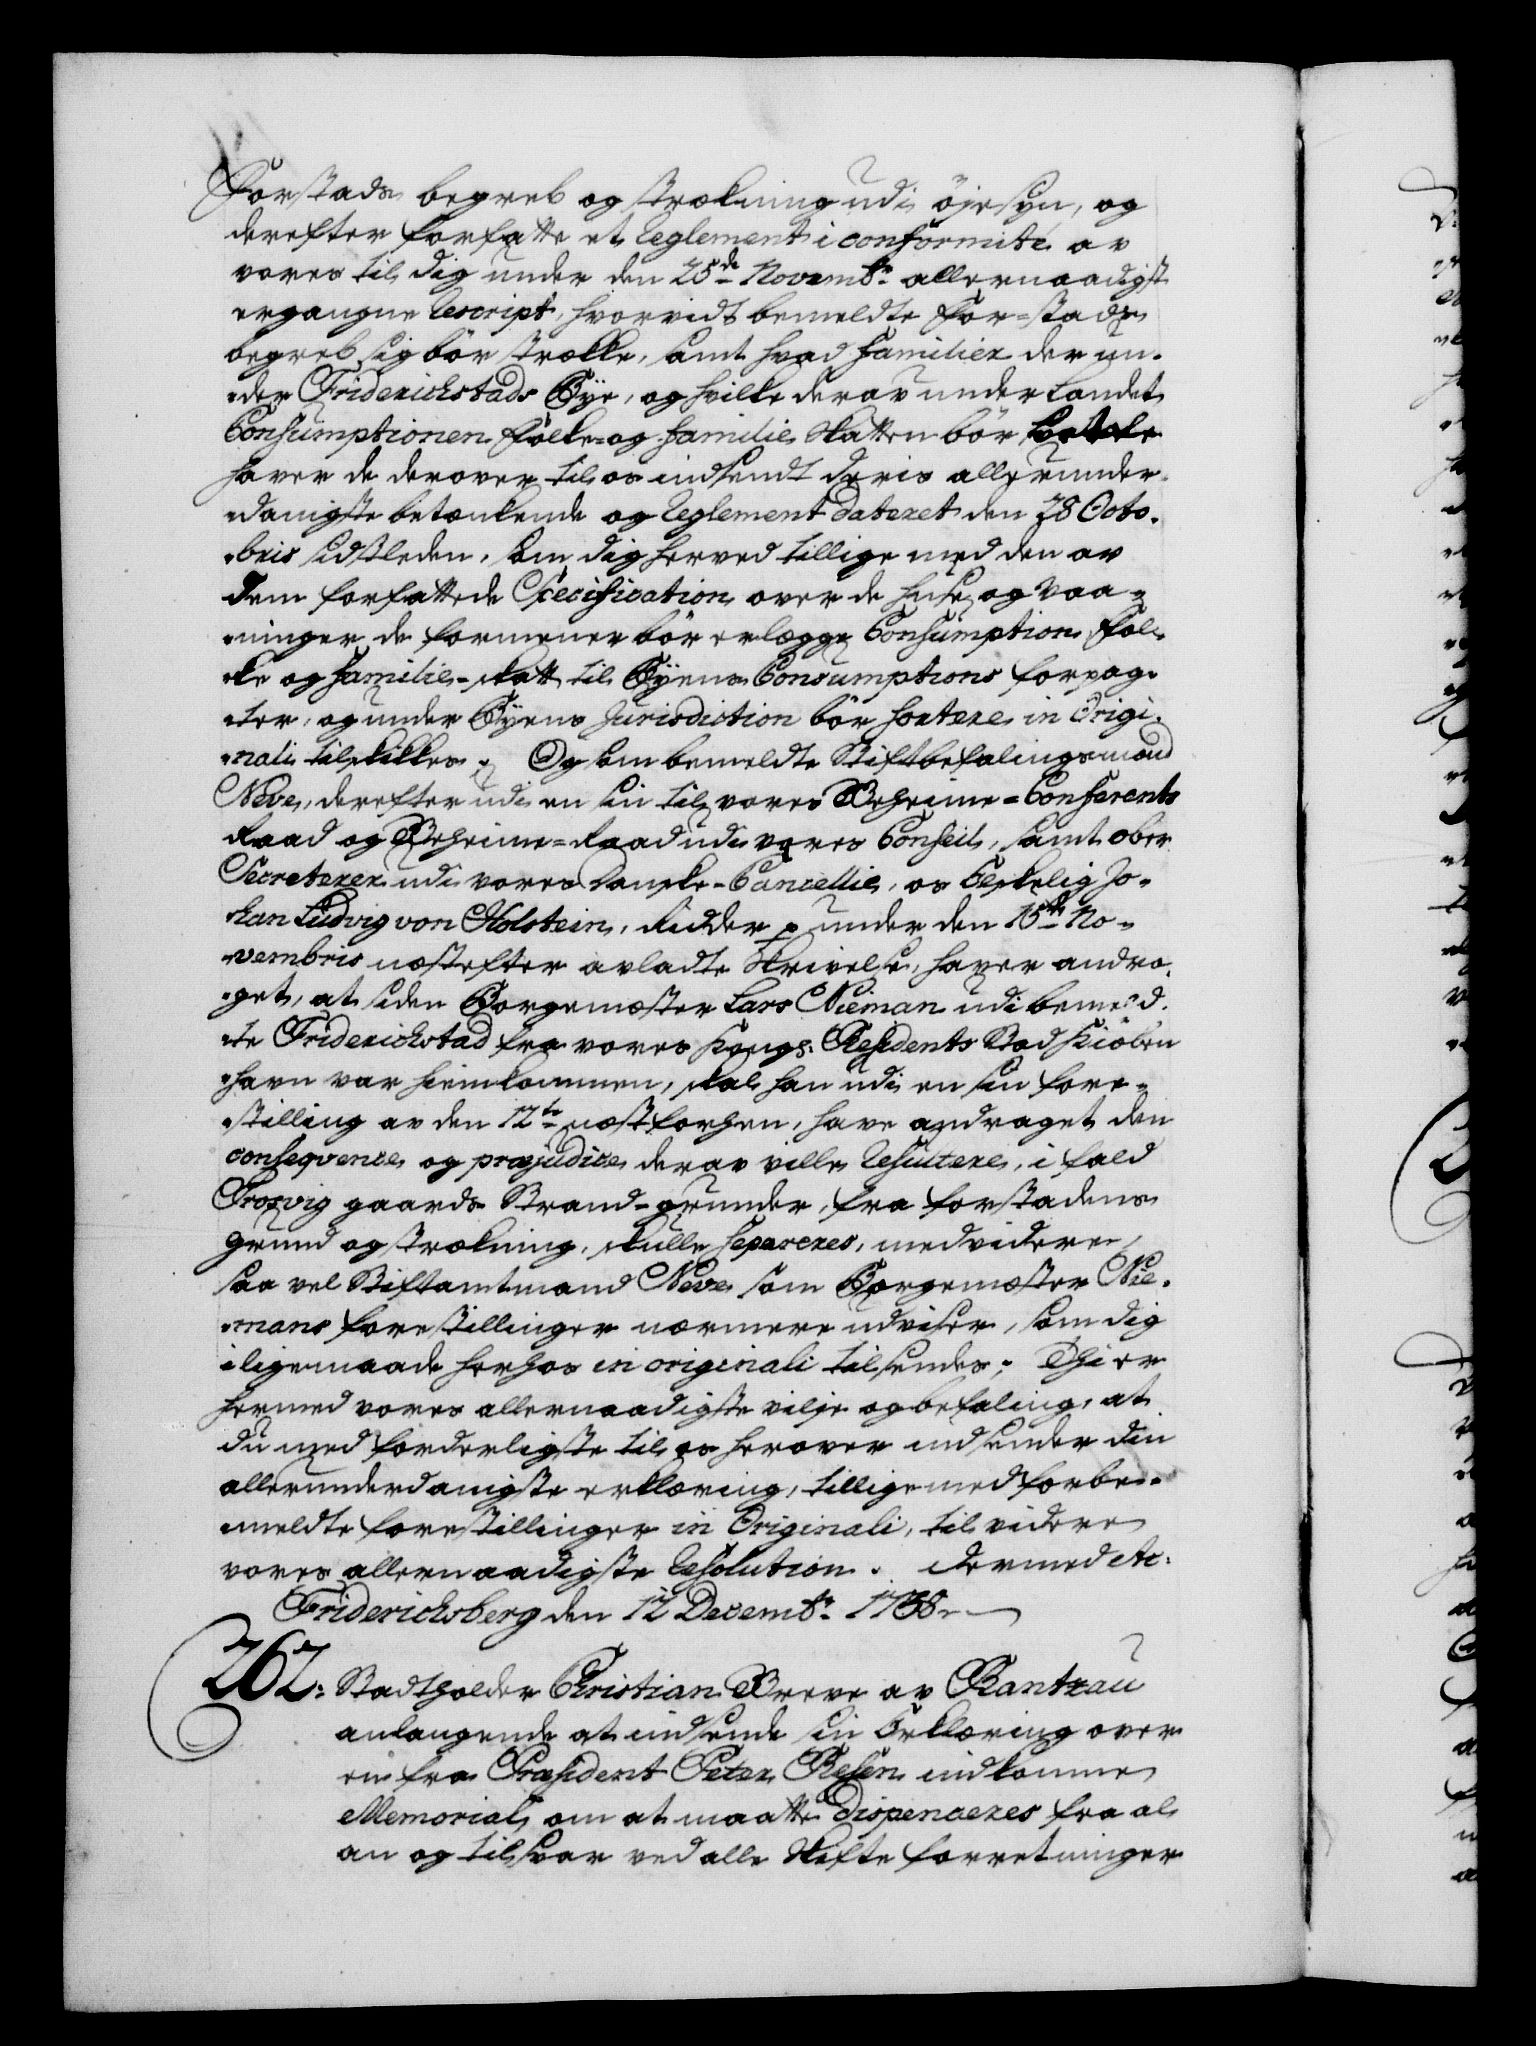 Forstads begreb og strækning udi öjesyn, og
derefter forfatte et Reglement i conformité av
vores til dig under den 25de Novembr: allernaadigst
ergangne Rescript, hvorvidt bemeldte For-stads
begreb sig bör strække, samt hvad Familier der un-
der Friderichstads Bye, og hvilke derav under Landet
Consumptionen Folke- og Familie Skatten bör
haver de derover til os indsendt deris allerunder-
danigste betænkende og Reglement dateret den 28 Octo-
bris sidstleden, som dig herved tillige med den av
dem forfattede Specification over de huse og Vaa-
ninger de formener bör erlægge Consumption Fol-
ke og Familie-skatt til Byens Consumptions forpag-
ter, og under Byens Jurisdiction bör hortere in Origi-
nali tilskikkes. Og som bemeldte Stiftbefalingsmand
Neve, derefter udi en sin til vores Geheime-Conferents
Raad og Geheime-Raad udi vores Conseil, samt ober
Secreterer udi vores danske-Cancellie, os Elskelig Jo-
han Ludvig von Holstein, Ridder p under den 15de No-
vembris næstefter avladte Skrivelse, haver andra-
get, at siden Borgemæster Lars Nieman udi bemeld-
te Friderichstad fra vores Kongs: Residents Stad Kiöben
havn var hiemkommen, skal han udi en sin fore-
stilling av den 12te næstforhen, have andraget den
conseqvence og præjudice derav ville Resultere, i fald
Trosvig gaards Strand-grunder, fra forstadens
grund og strækning, skulle separeres, med videre,
saa vel Stiftamtmand Neve som Borgemæster Nie-
mans forestillinger nærmere udviser, som dig
iligemaade herhos in originali tilsendes; Thi er
hermed vores allernaadigste vilje og befaling, at
du med forderligste til os herover indsender din
allerunderdanigste erklæring, tillige med forbe-
meldte forestillinger in Originali, til videre
vores allernaadigste Resolution. Dermed etc:
Friderichsberg den 12 Decembr: 1738.
262: Stadtholder Christian Greve av Rantzau
anlangende at indsende sin Erklæring over
en fra Præsident Peter Resen indkomne
Memorial, om at maatte dispenceres fra al
an og tilsvar ved alle Skifte forretninger